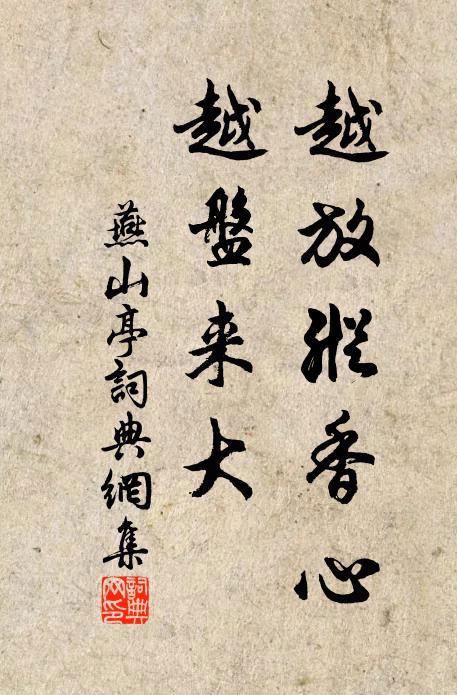 越放縱香心
越盤来大
燕山亭詞典網集
詞典
网印